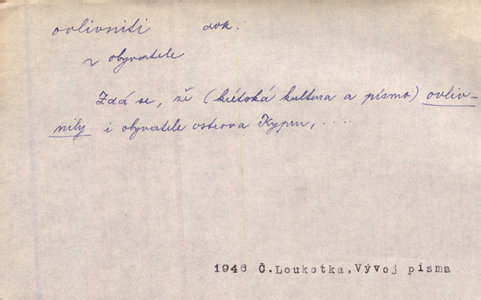 ovlivniti dok.
~ obyvatele
Zdá se, že (krétská kultura a písmo) ovliv-
nily i obyvatele ostrova Kypru, ....
1946 Č.Loukotka,Vývoj písma